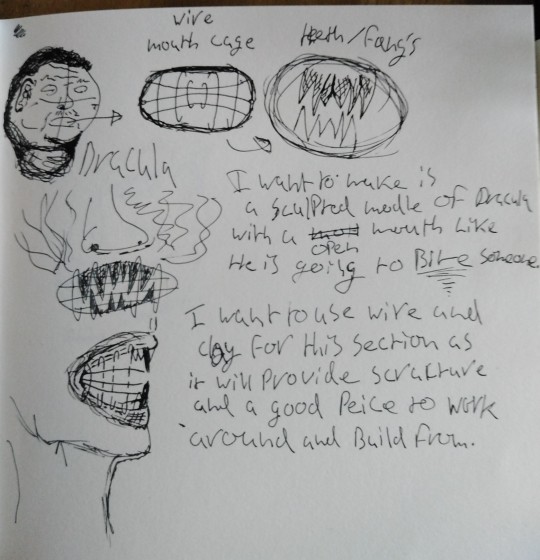 wire
mouth cage
teeth/Fang's
Dracula
I want to make is
a sculpted modle of Dracula
with a open mouth Like
He is going to Bite Someone.
I want to use wire and
clay for this section as
it will Provide scrukture
and a good Peice to work
around and Build From.